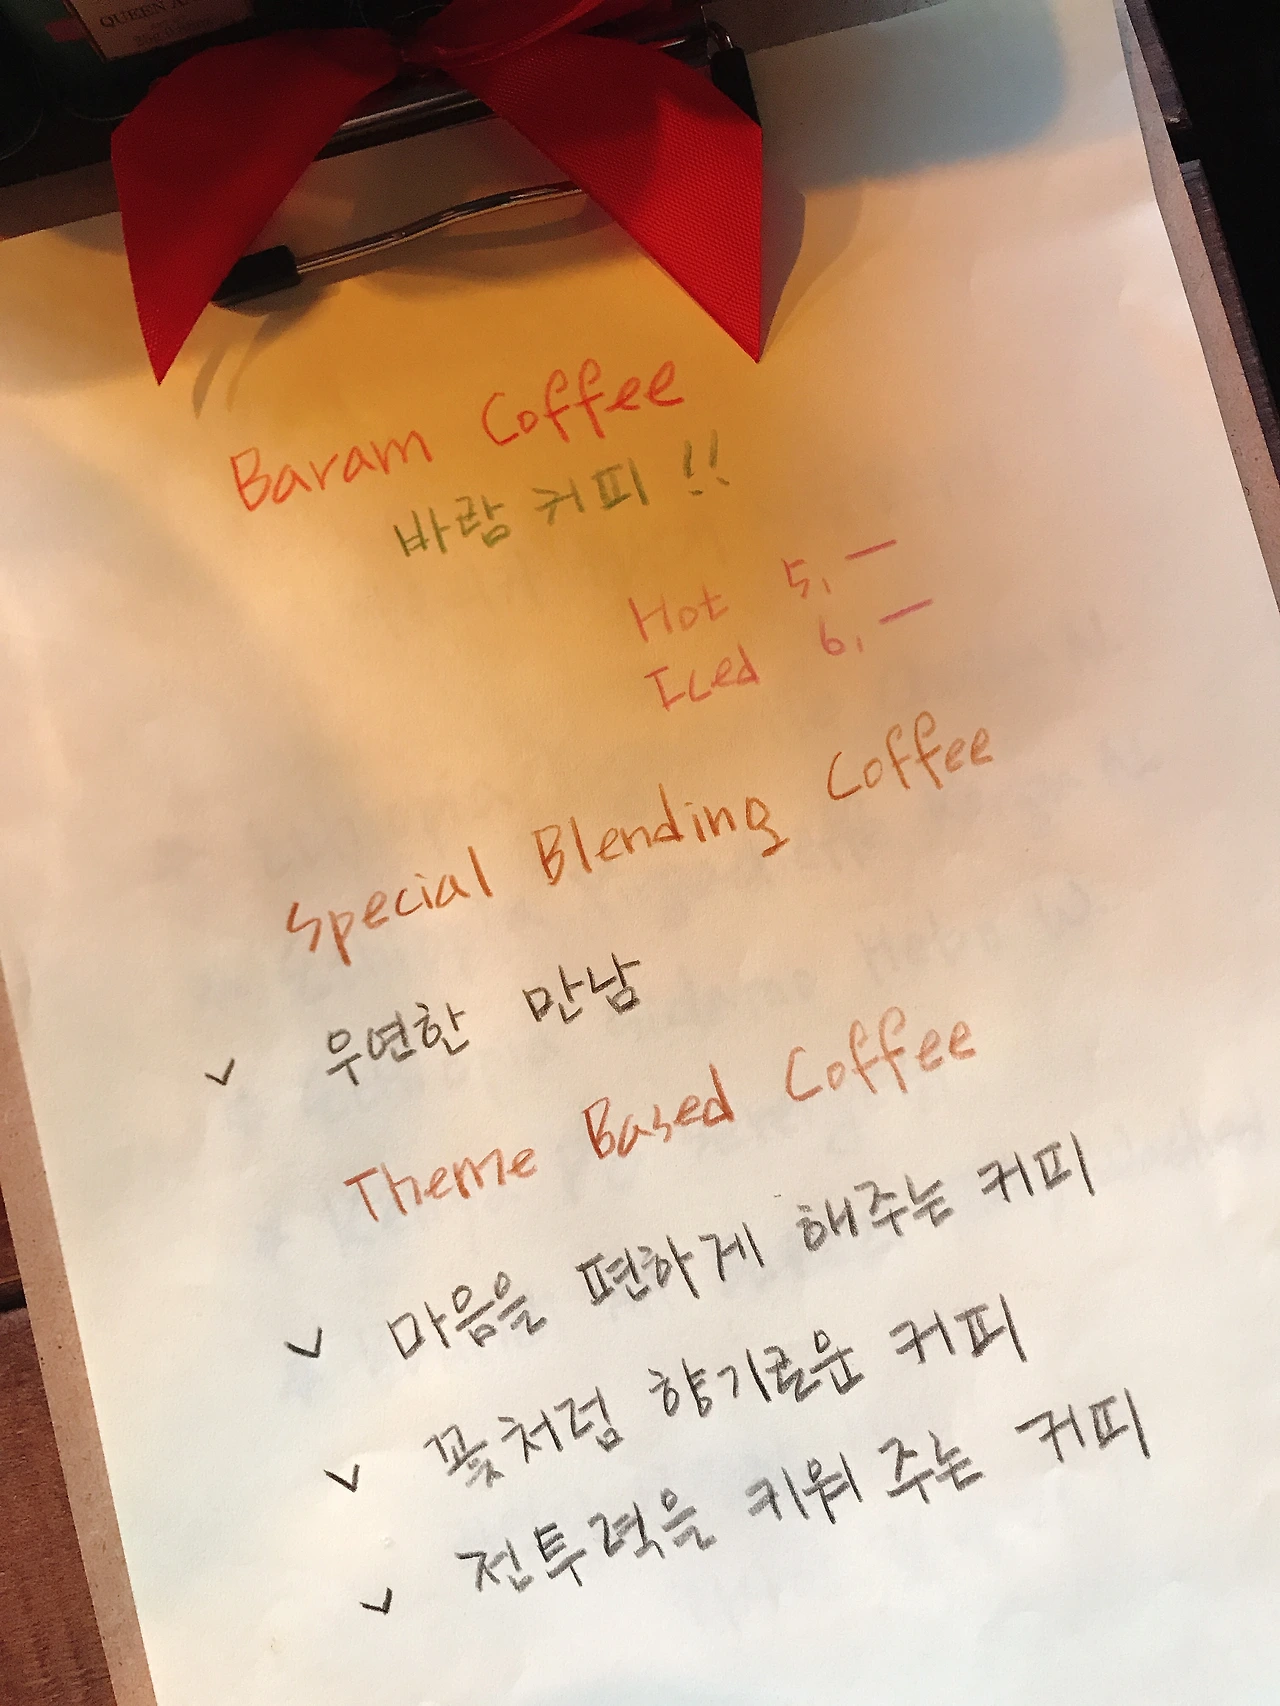 QUEEN A
Baram Coffee
바람 커피 !!
Hot 5,—
Iced 6,—
Special Blending Coffee
✓ 우연한 만남
Theme Based Coffee
✓ 마음을 편하게 해주는 커피
✓ 꽃처럼 향기로운 커피
✓ 전투력을 키워 주는 커피